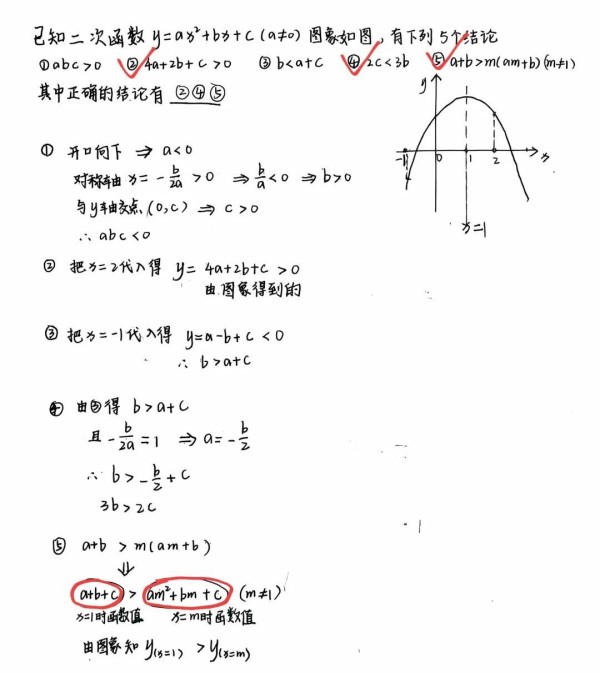 已知二次函数 y=ax²+bx+c (a≠0) 图象如图, 有下列5个结论
①abc>0 ②4a+2b+c>0 ③b<a+c ④2c<3b ⑤a+b>m(am+b)(m≠1)
其中正确的结论有 ②④⑤
y
-1 0 1 2 x
x=1
① 开口向下 ⇒ a<0
对称轴 x=-b/2a>0 ⇒ b/a<0 ⇒ b>0
与y轴交点(0,c) ⇒ c>0
∴ abc<0
② 把x=2代入得 y=4a+2b+c>0
由图象得到的
③ 把x=-1代入得 y=a-b+c<0
∴ b>a+c
④ 由③得 b>a+c
且-b/2a=1 ⇒ a=-b/2
∴ b>-b/2+c
3b>2c
⑤ a+b>m(am+b)
⇓
a+b+c > am²+bm+c (m≠1)
x=1时函数值 x=m时函数值
由图象知 y(x=1) > y(x=m)